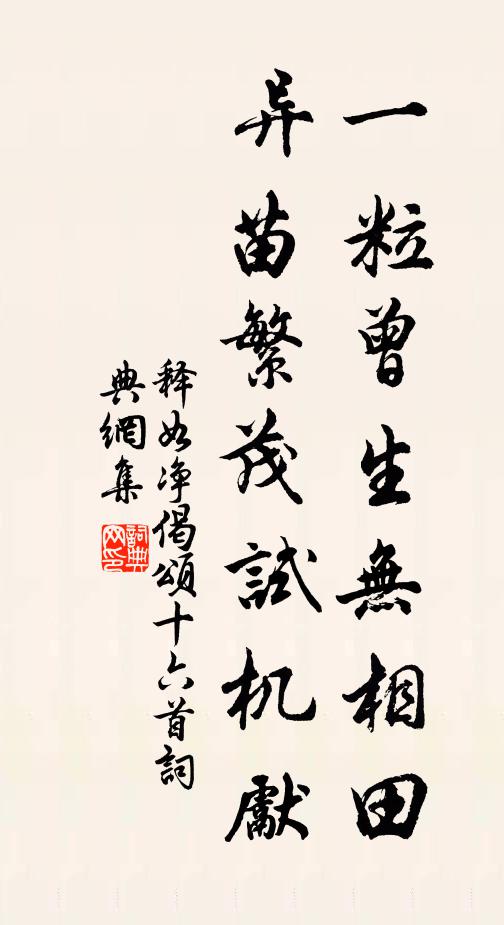 一粒曾生無相田
异苗繁茂試机獻
释如净偈頌十六首詞
典網集
詞典网印